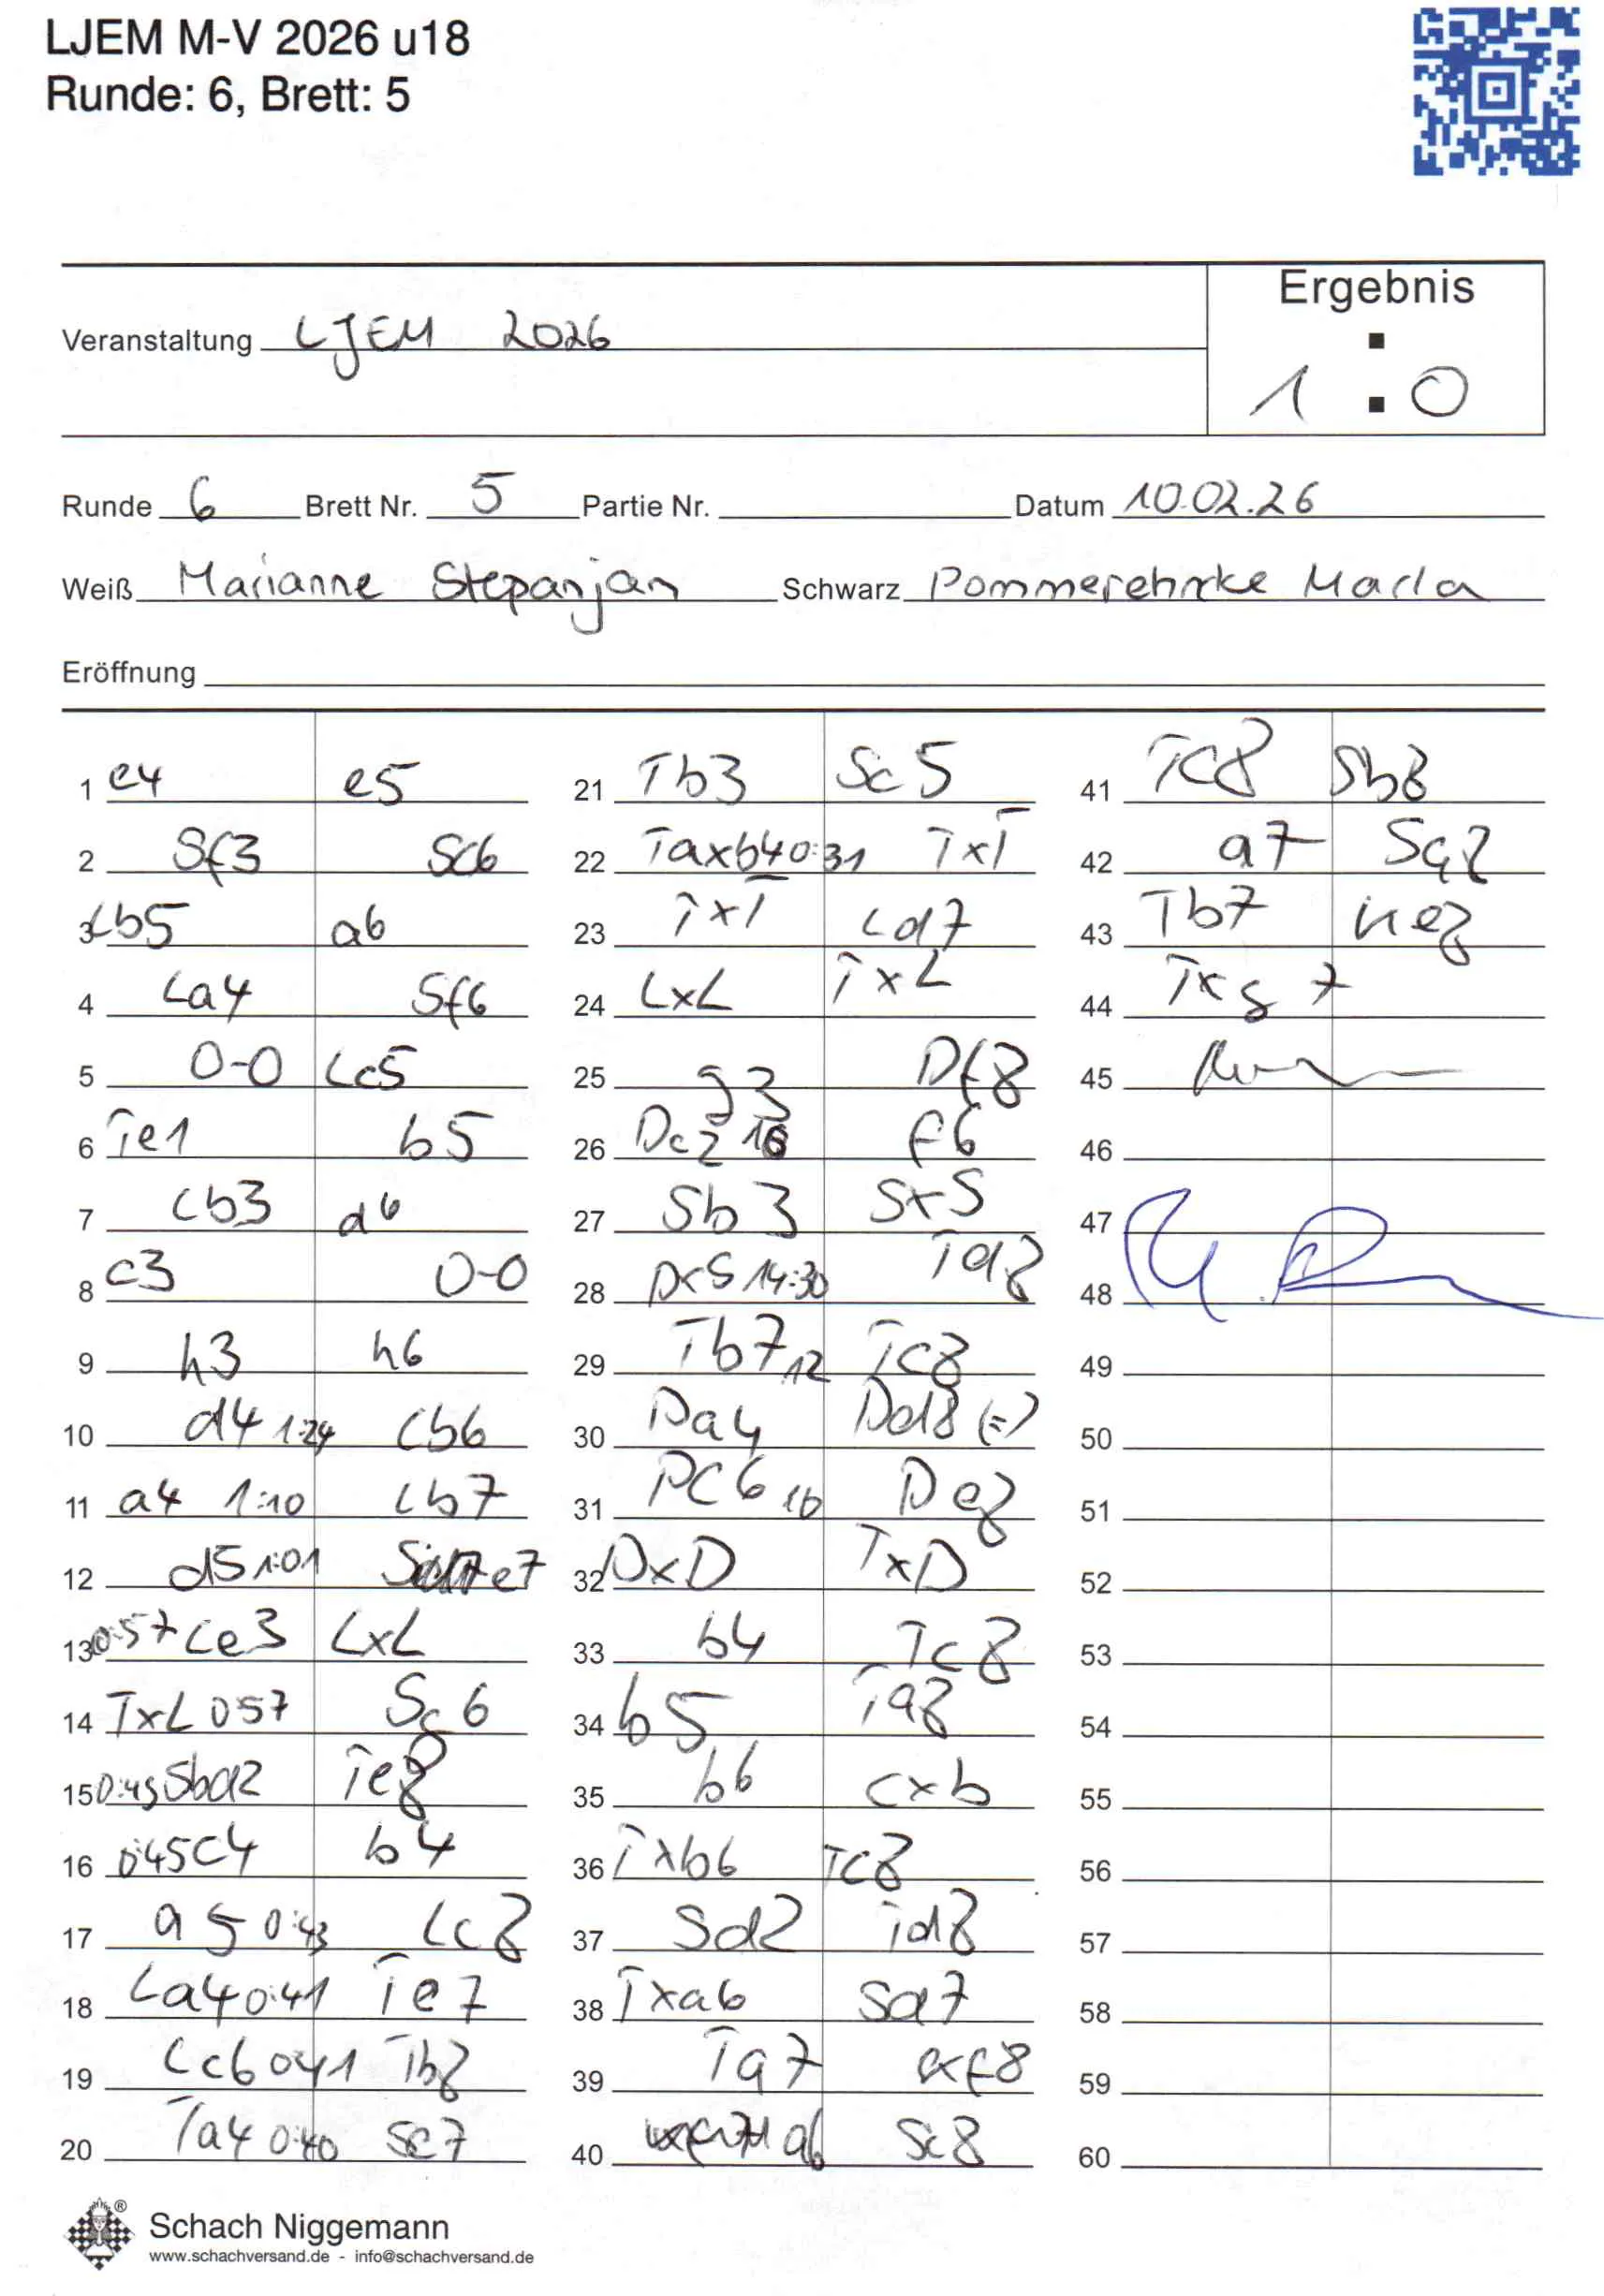 LJEM M-V 2026 u18
Runde: 6, Brett: 5
Ergebnis
Veranstaltung LJEM 2026
1 : 0
Runde 6 Brett Nr. 5 Partie Nr. Datum 10.02.26
Weiß Marianne Stepanjan Schwarz Pommerehnke Marla
Eröffnung
1 e4 e5
2 Sf3 Sc6
3 Lb5 a6
4 La4 Sf6
5 0-0 Lc5
6 Te1 b5
7 Lb3 d6
8 c3 0-0
9 h3 h6
10 d4 1:24 Lb6
11 a4 1:10 Lb7
12 d5 1:01 Se7
13 0:57 Le3 LxL
14 TxL 057 Sc6
15 0:45 Sbd2 Te8
16 0:45 c4 b4
17 a5 0:43 Lc8
18 La4 0:41 Te7
19 Lc6 041 Tb8
20 Ta4 0:40 Se7
21 Tb3 Sc5
22 Taxb4 0:31 TxT
23 TxT Ld7
24 LxL TxL
25 g3 Df8
26 Dc2 16 f6
27 Sb3 SxS
28 DxS 14:30 Td8
29 Tb7 12 Tc8
30 Da4 Dd8 (=)
31 DC6 10 De8
32 DxD TxD
33 b4 Tc8
34 b5 Ta8
35 b6 cxb
36 Txb6 Tc8
37 Sd2 Td8
38 Txa6 Sd7
39 Ta7 Kf8
40 a6 Sc8
41 Tc8 Sb8
42 a7 Sa8
43 Tb7 Ke8
44 Txg7
45
46
47
48
49
50
51
52
53
54
55
56
57
58
59
60
Schach Niggemann
www.schachversand.de - info@schachversand.de